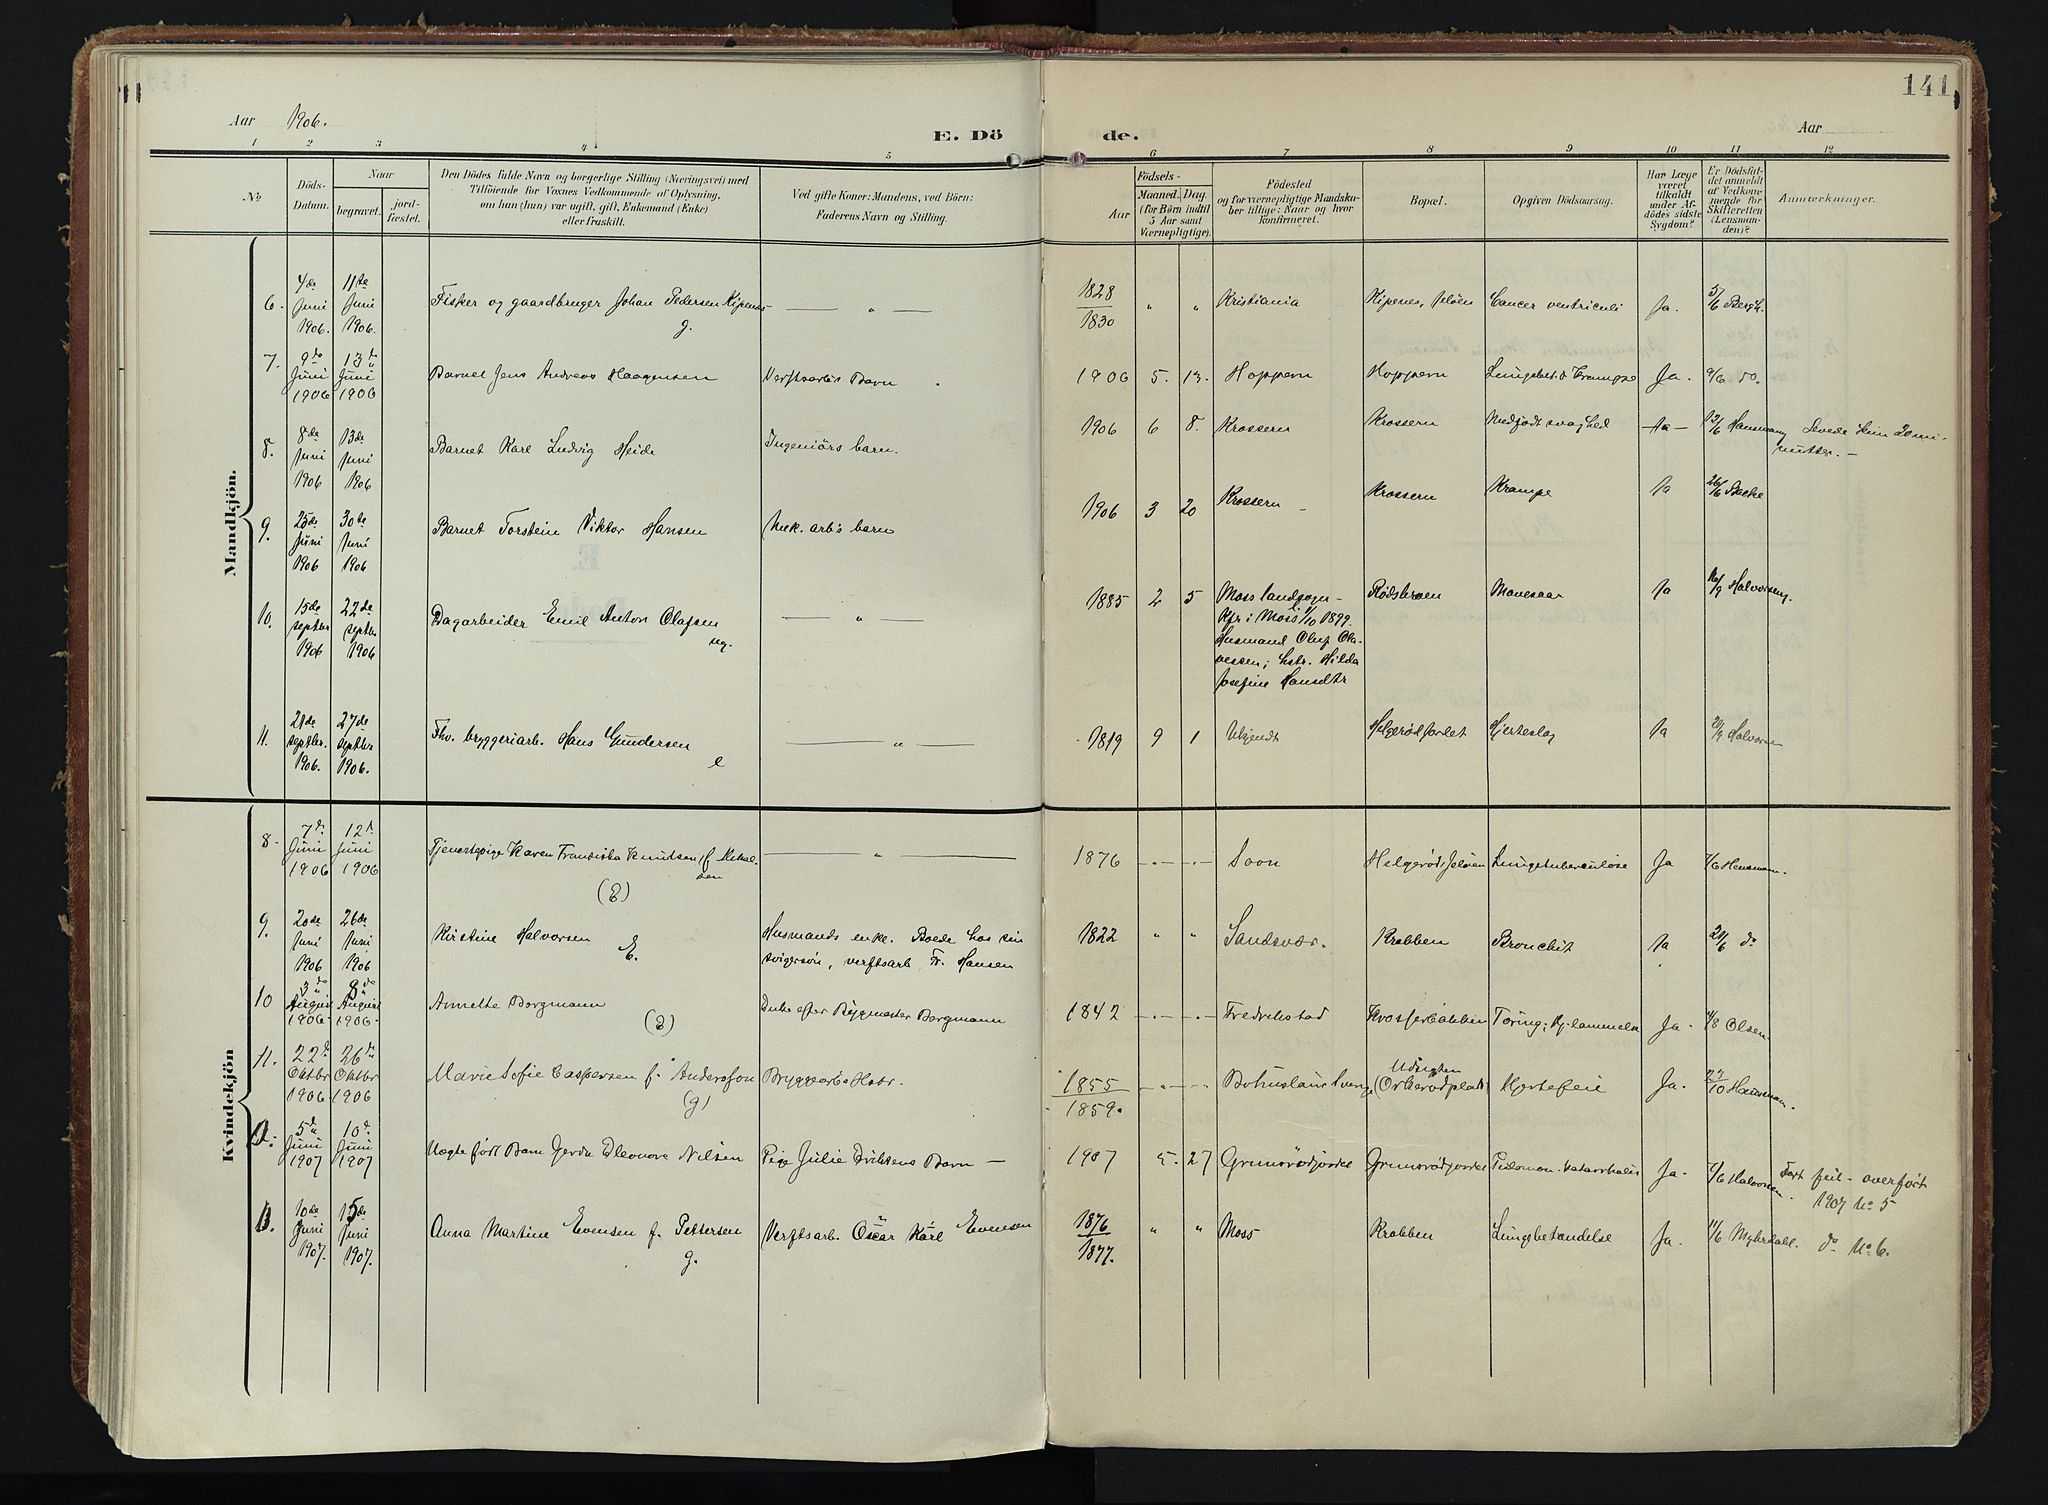 141
Aar 1906.
E. Dö de.
Aar
1 2 3 4 5 6 7 8 9 10 11 12
No
Döds-
Datum.
Naar
begravet.
jord-
fæstet.
Den Dödes fulde Navn og borgerlige Stilling (Næringsvei) med
Tilföiende for Voxnes Vedkommende af Oplysning,
om han (hun) var ugift, gift, Enkemand (Enke)
eller fraskilt.
Ved gifte Koner: Mandens, ved Börn:
Faderens Navn og Stilling.
Aar
Födsels-
Maaned. Dag.
(for Börn indtil
5 Aar samt
Værnepligtige).
Födested
og for værnepligtige Mandsku-
ber tillige: Naar og hvor
konfirmeret.
Bopæl.
Opgiven Dödsaarsag.
Har Læge
været
tilkaldt
under Af-
dödes sidste
Sygdom?
Er Dödsfal-
det anmeldt
af Vedkom-
mende for
Skifteretten
(Lensman-
den)?
Anmærkninger.
Mandkjön.
6. 4de Juni 1906. 11te Juni 1906. Fisker og gaardbruger Johan Pedersen Kipenes g. — " — 1828 / 1830 " " Kristiania Kipenes, Jeløen Cancer ventriculi Ja. 5/6 Bergh.
7. 9de Juni 1906 13de Juni 1906 Barnet Jens Andreas Haagensen Verftsarb's Barn 1906 5. 13. Hoppern Hoppern Lungebet. & Krampe Ja. 9/6 do.
8. 8de Juni 1906 13de Juni 1906 Barnet Karl Ludvig Heide Ingeniörs barn. 1906 6 8. Krossern Krossern Medfødt svaghed Ja 13/6 Hansmann Levede kun 20 mi-
nutter. —
9. 25de Juni 1906 30te Juni 1906 Barnet Torstein Viktor Hansen Mek. arb's barn 1906 3 20 Krossern Krossern Krampe Ja 26/6 Bakke
10. 15de septbr 1906 22de septbr 1906 Dagarbeider Emil Anton Olafsen ug. — " — 1885 2 5 Moss landsogn —
Kfr. i Moss 1/10 1899.
Husmand Oluf Ol-
vessen; hstr. Hilda
Josefine Hansdtr
Rødsbroen Mavesaar Ja 16/9 Halvorsen.
11. 21de septbr. 1906. 27de septbr 1906. Fhv. bryggeriarb. Hans Gundersen e — " — 1819 9 1 Ukjendt Helgerødfordet Hjerteslag Ja 21/9 Halvorsen
Kvindekjön
8. 7de Juni 1906 12te Juni 1906 Tjenestepige Karen Franziska Knudsen, f. Mikal-
sen
(E)
— " — 1876 — " — Soon Helgerød, Jeløen Lungetuberculose Ja 7/6 Hansmann.
9. 20de Juni 1906 26de Juni 1906 Kirstine Halvorsen E. Husmands enke. Boede hos sin
svigersön, verftsarb Fr. Hansen
1822 " " Sandsvær. Krabben Bronchit Ja 21/6 do
10 3de August 1906 8de August 1906 Annette Borgmann (E) Enke efter Bygmester Borgmann 1842 — " — Fredrikstad Krosserbakken Ja. 4/8 Olsen
11. 22de Oktbr 1906 26de Oktbr 1906 Marie Sofie Caspersen f. Andersson (g) Bryggearb's Hstr. 1855 / 1859. — " — Bohuslän Sverige Udsigten
(Orkerødplads)
Hjertefeil Ja. 23/10 Hansmann.
5de Juni 1907 10de Juni 1907 Uægte født Barn Gerda Eleonore Nilsen Pige Julie Eriksens Barn — 1907 5. 27 Grimsrödjordet Grimsrødjordet Ja. 7/6 Halvorsen. Fört feil — overfört
1907 No 5
10de Juni 1907. 15de Juni 1907. Anna Martine Evensen f. Pettersen g. Verftsarb. Oscar Karl Evensen 1876 / 1877. " " Moss Krabben Lungebetændelse Ja. 11/6 Myhrdahl. do No 6.